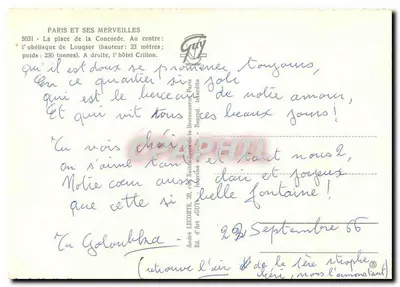 PARIS ET SES MERVEILLES
5031 - La place de la Concorde. Au centre :
l'obélisque de Louqsor (hauteur : 23 mètres;
poids : 230 tonnes). A droite, l'hôtel Crillon.
Guy
qu'il est doux se promener toujours,
En ce quartier si joli
qui est le berceau de notre amour,
Et qui vit tous ces beaux jours !
Tu vois chéri
on s'aime tant et tant nous 2,
Notre cœur aussi clair et joyeux
que cette si belle fontaine !
Ta Goloubka
22 Septembre 66
(retrouve l'air de la 1ère strophe